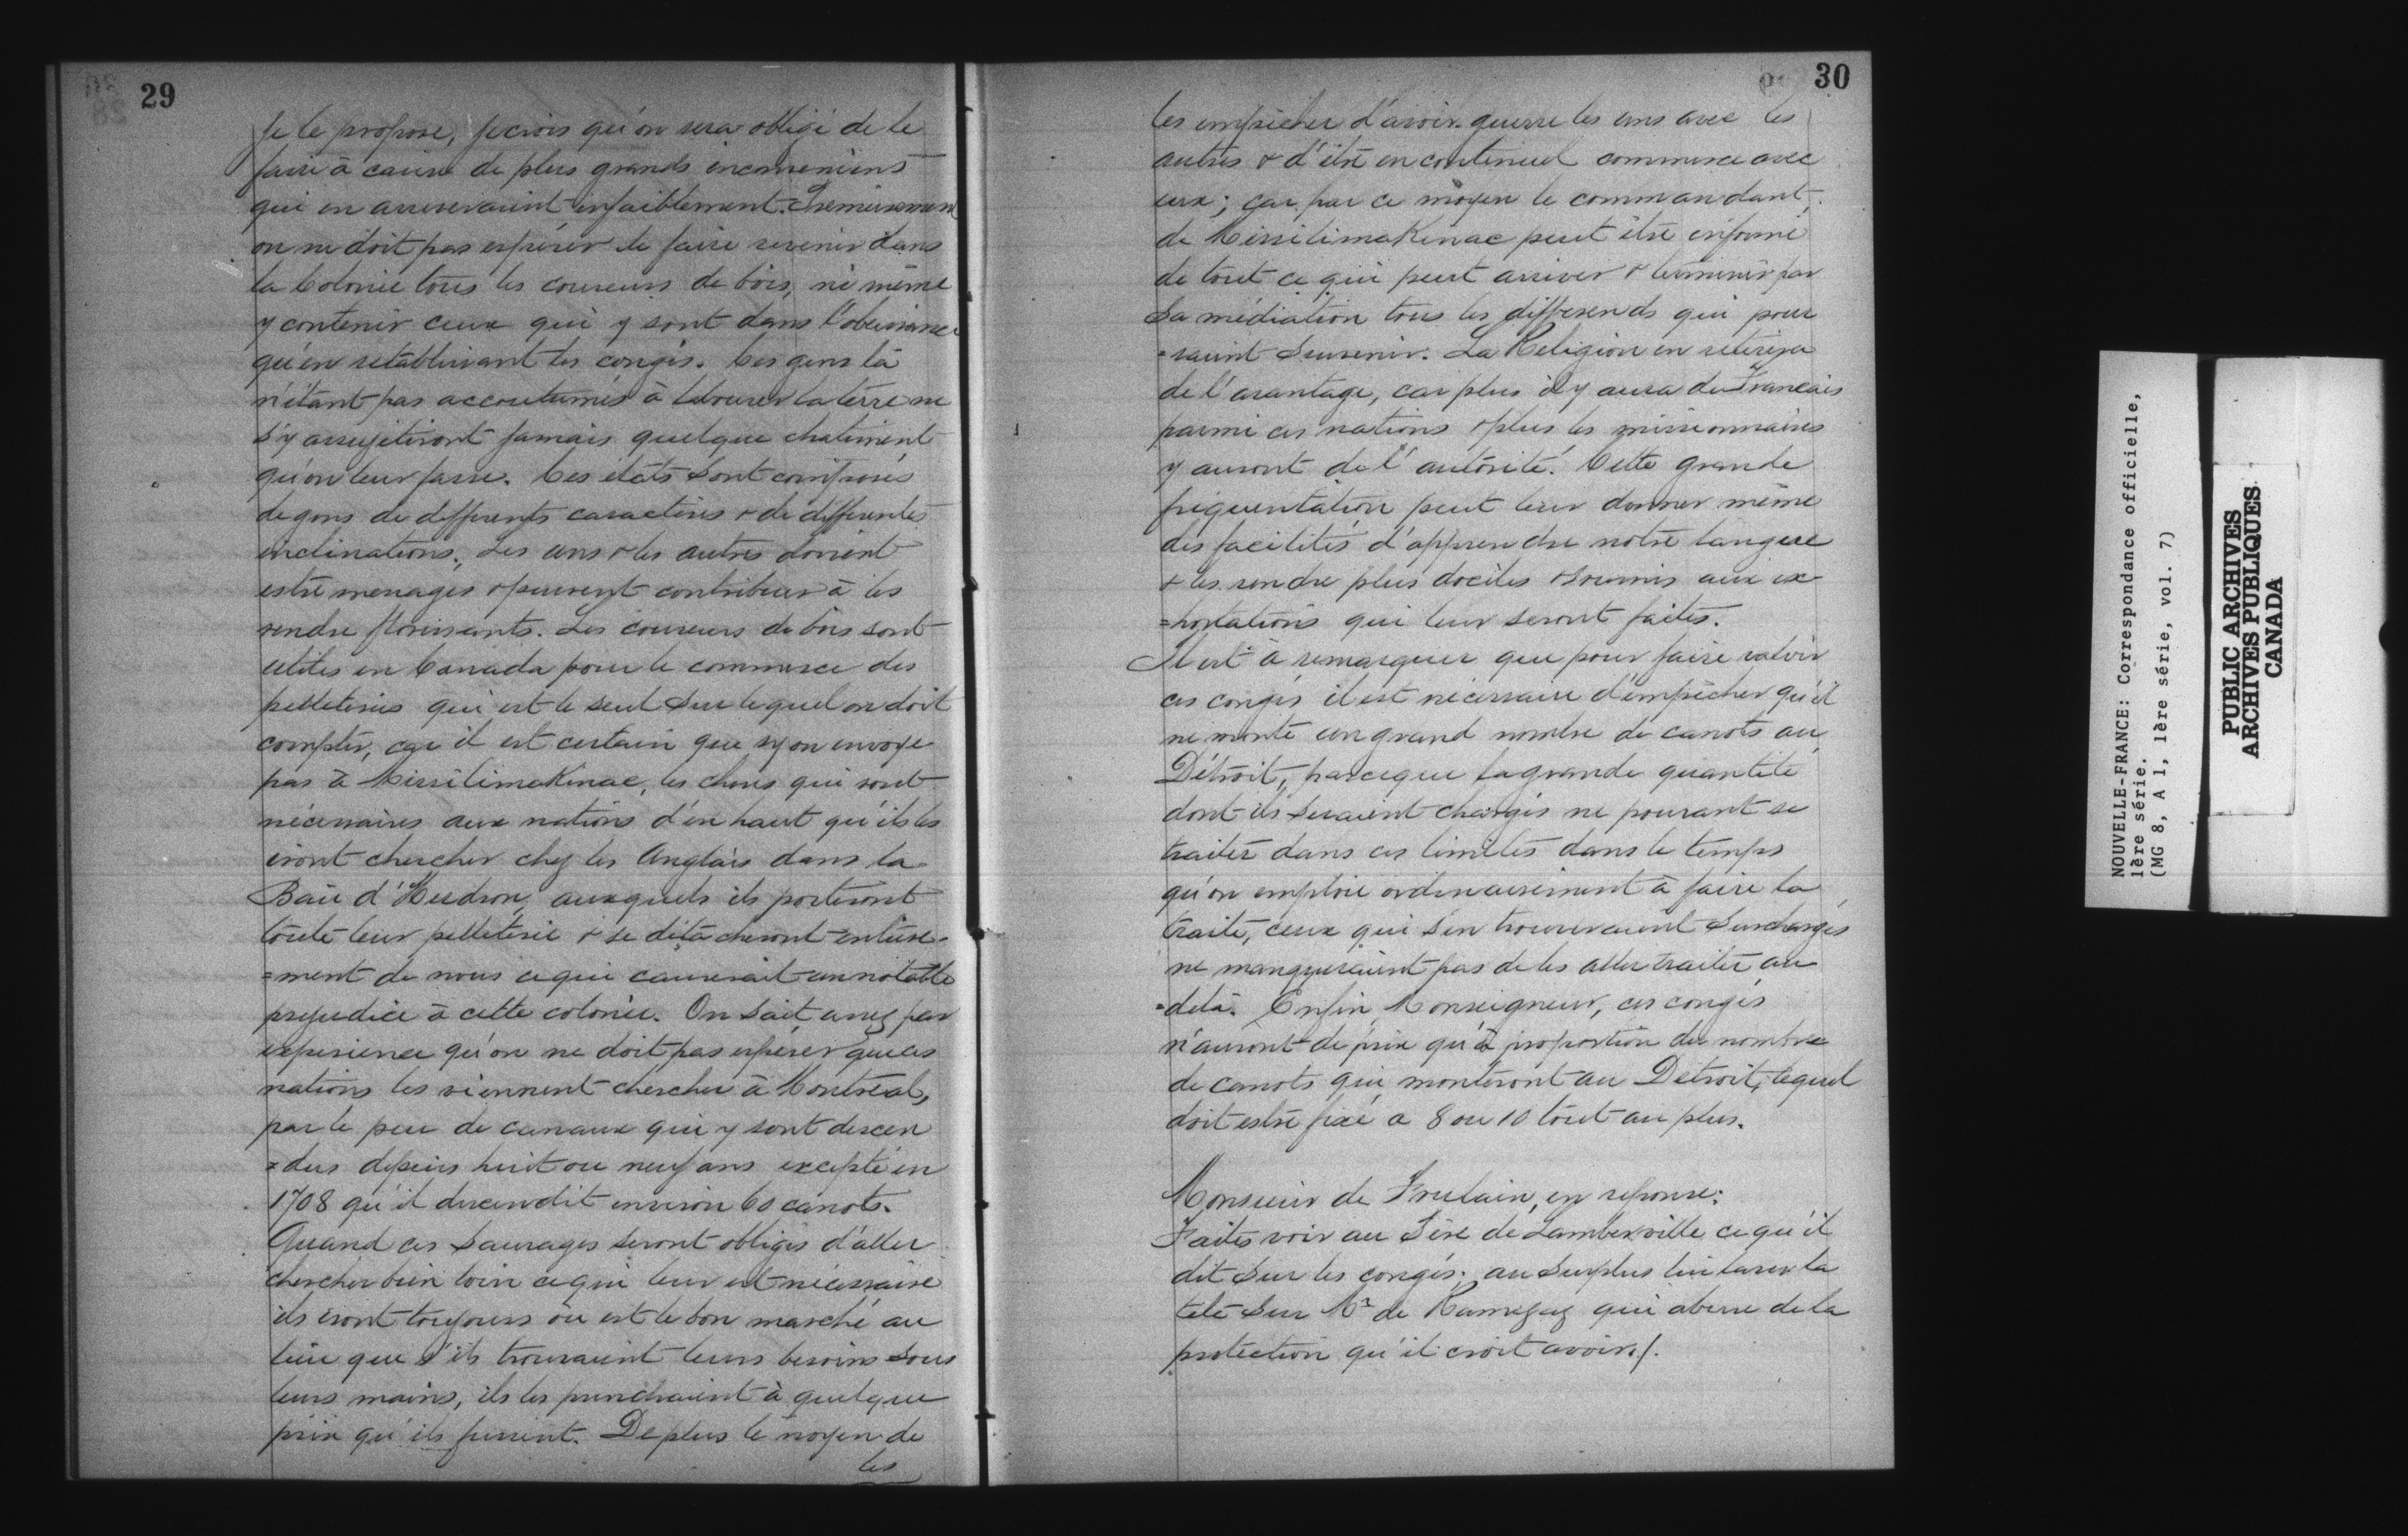 29
je le propose, je crois qu'on sera obligé de le
faire à cause de plus grands inconveniens
qui en arriveraient infailblement. Premierement
on ne doit pas espérer de faire revenir dans
la Colonie tous les coureurs de bois, ni même
y contenir ceux qui y sont dans l'obeissance
qu'en rétablissant les congés. Ces gens là
n'étant pas accoutumés à labourer la terre ne
s'y assujetiront jamais quelque chatiment
qu'on leur fasse. Ces etats sont composés
de gens de differents caractères & de differentes
inclinations; Les uns & les autres doivent
estre menagés & peuvent contribuer à les
rendre florissants. Les coureurs de bois sont
utiles en Canada pour le commerce des
pelleteries qui est le seul sur lequel on doit
compter, car il est certain que sy on envoye
pas à Missilimakinac, les choses qui sont
nécessaires aux nations d'en haut qu'ils les
iront chercher chez les Anglais dans la
Baie d'Hudson, auxquels ils porteront
toute leur pelleterie & se détacheront entière-
=ment de nous ce qui causerait un notable
prejudice à cette colonie. On sait assez par
experience qu'on ne doit pas espérer que ces
nations les viennent chercher à Montréal,
par le peu de canaux qui y sont descen
=dus depuis huit ou neuf ans excepté en
1708 qu'il descendit environ 60 canots.
Quand ces Sauvages seront obligés d'aller
chercher bien loin ce qui leur est nécessaire
ils iront toujours où est le bon marché au
lieu que s'ils trouvaient leurs besoins sous
leurs mains, ils les prendraient à quelque
prix qu'ils fussent. De plus le moyen de
les
30
les empêcher d'avoir guerre les uns avec les
autres & d'être en continuel commerce avec
eux; car par ce moyen le commandant,
de Missilimakinac peut être informé
de tout ce qui peut arriver & terminer par
Sa médiation tous les differends qui pour
=raient Survenir. La Religion en retirera
de l'avantage, car plus il y aura de Francais
parmi ces nations & plus les missionnaires
y auront de l'autorité. Cette grande
fréquentation peut leur donner même
des facilités d'apprendre notre langue
& les rendre plus dociles & soumis aux ex
=hortations qui leur seront faites.
Il est à remarquer que pour faire valoir
ces congés il est nécessaire d'empêcher qu'il
ne monte un grand nombre de canots au
Détroit, parceque la grande quantité
dont ils seraient chargés ne pouvant se
traiter dans ces limites dans le temps
qu'on emploie ordinairement à faire la
traite, ceux qui s'en trouveraient surchargés
ne manqueraient pas de les aller traiter au
=delà. Enfin, Monseigneur, ces congés
n'auront de prix qu'à proportion du nombre
de canots qui monteront au Détroit, lequel
doit estre fixé a 8 ou 10 tout au plus.
Monsieur de Frulain, en reponse:
Faites voir au Père de Lamberville ce qu'il
dit sur les congés; au surplus lui laver la
tete sur Mr de Ramezay qui abuse de la
protection qu'il croit avoir./.
NOUVELLE-FRANCE: Correspondance officielle,
1ère série.
(MG 8, A 1, 1ère série, vol. 7)
PUBLIC ARCHIVES
ARCHIVES PUBLIQUES
CANADA